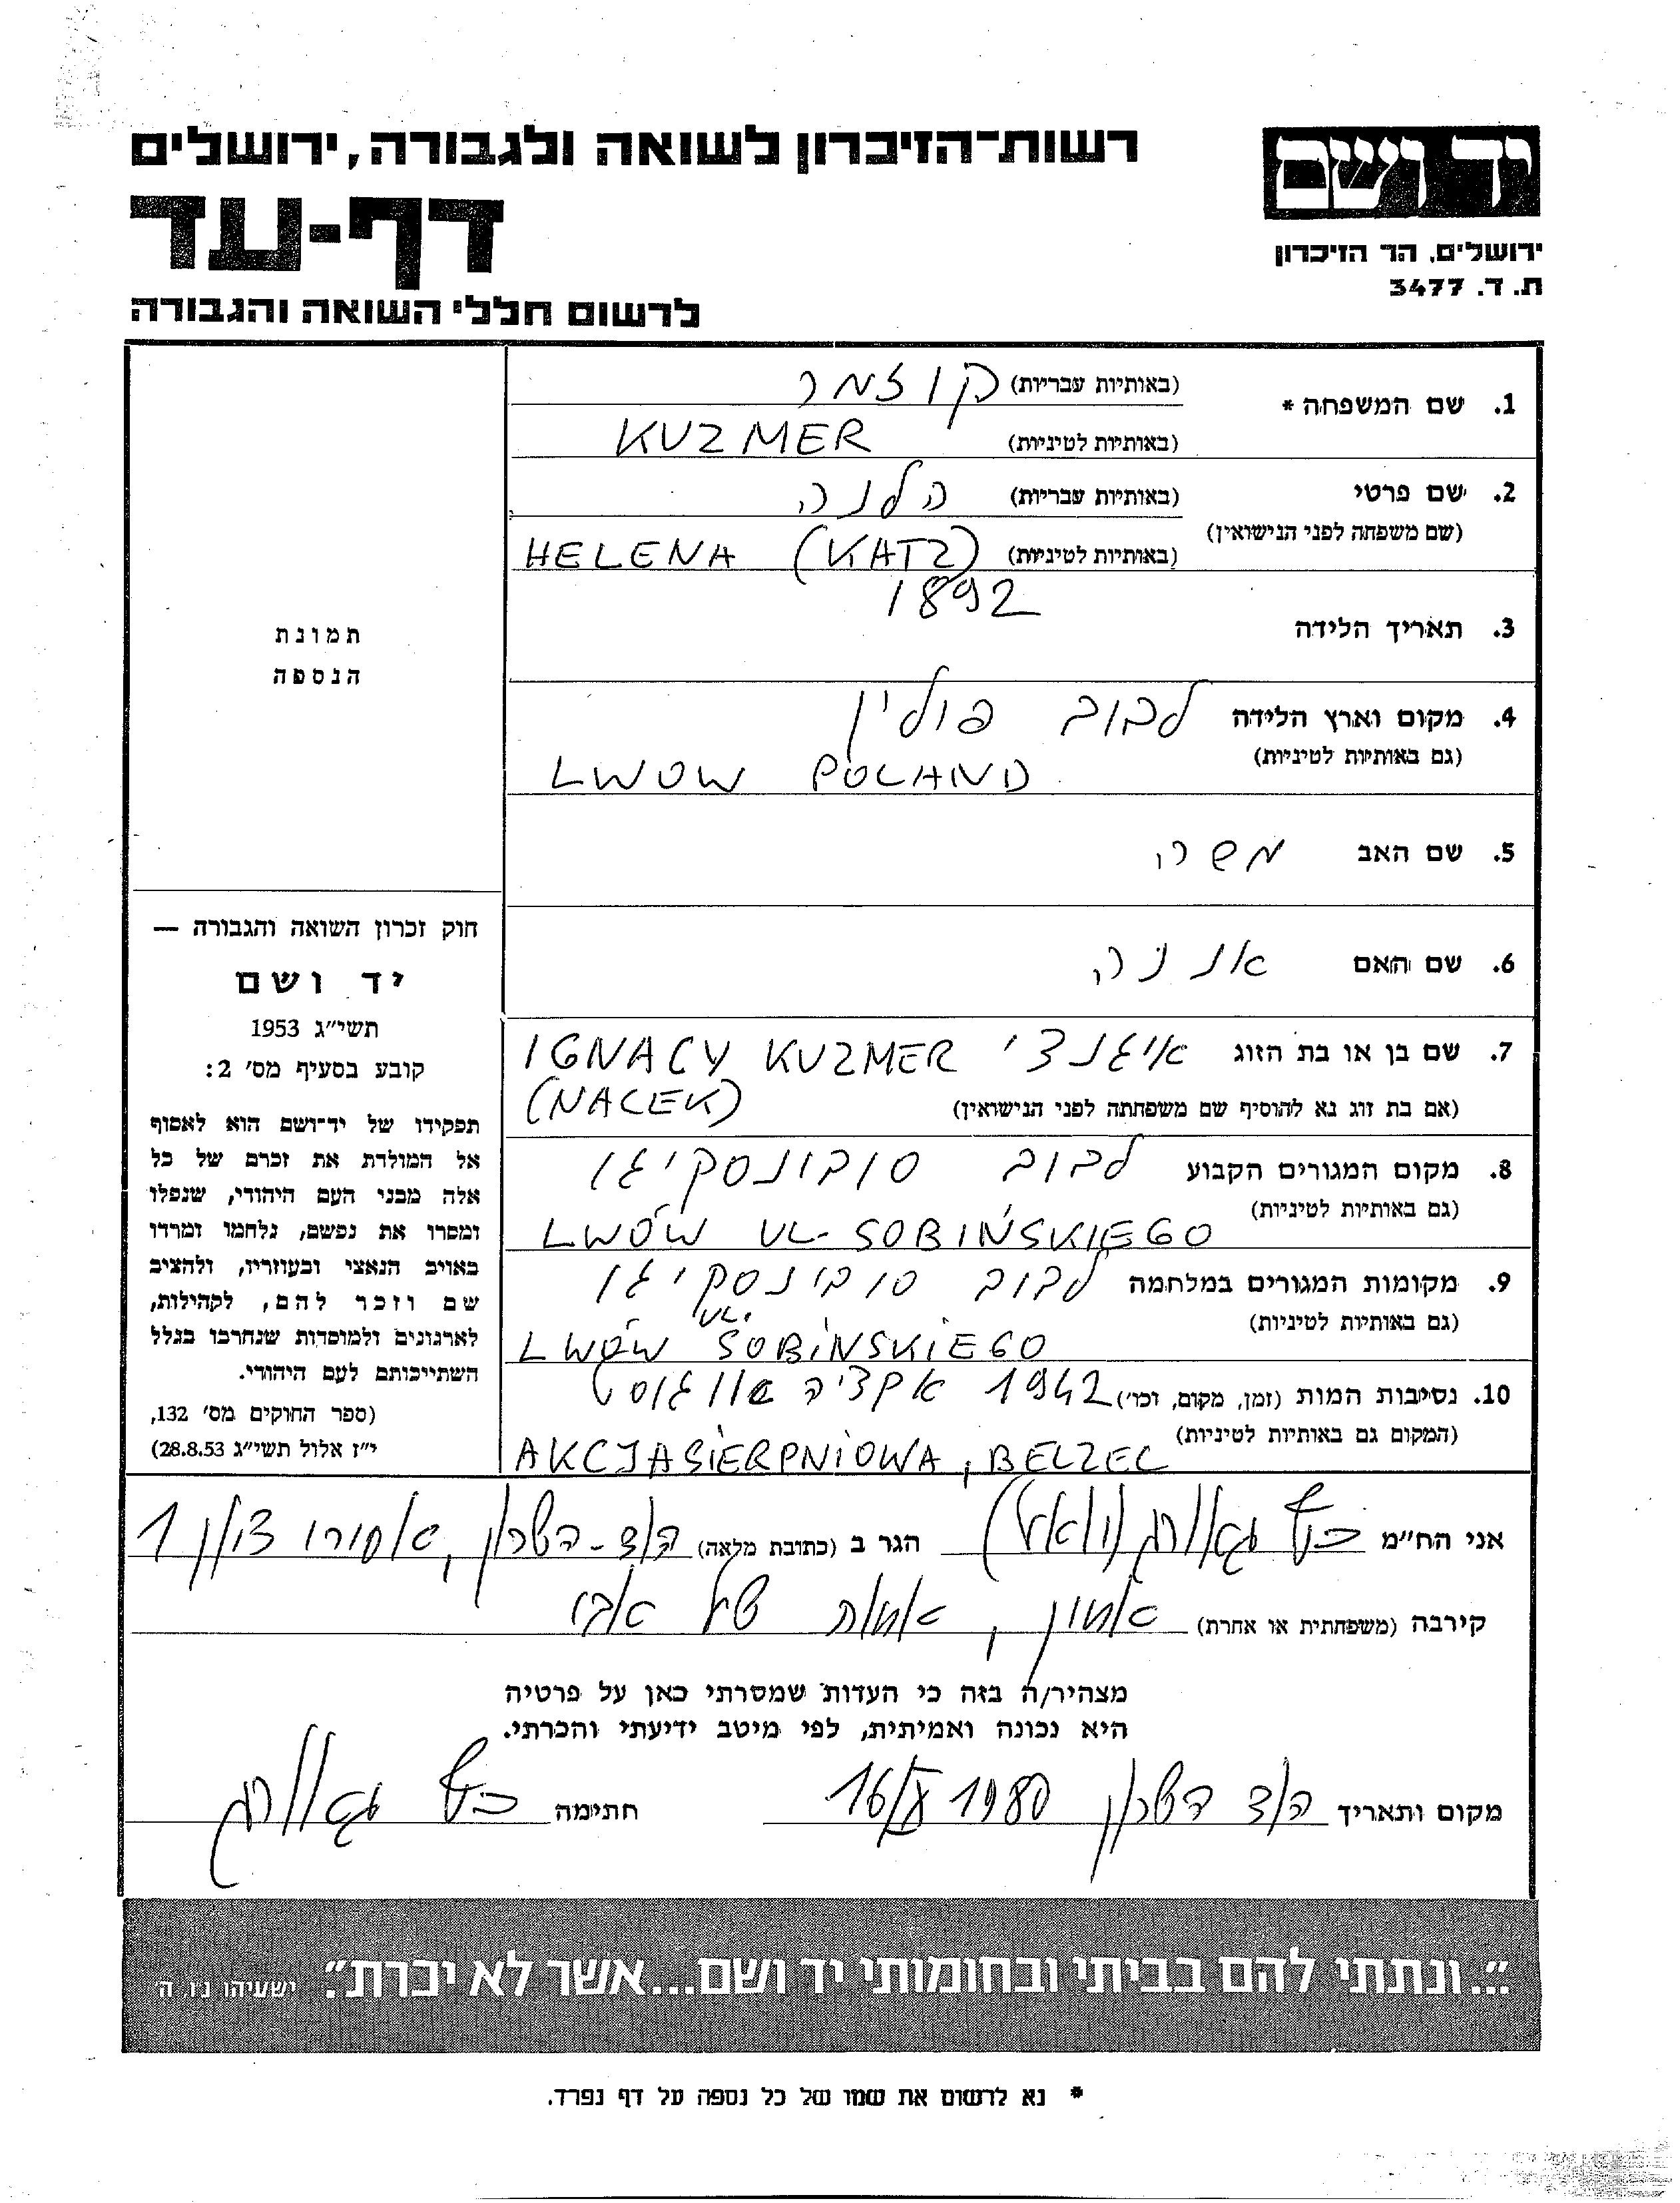 יד ושם
ירושלים, הר הזיכרון
ת. ד. 3477
רשות־הזיכרון לשואה ולגבורה, ירושלים
דף-עד
לרשום חללי השואה והגבורה
1. שם המשפחה * (באותיות עבריות) קוזמר
(באותיות לטיניות) KUZMER
2. שם פרטי (באותיות עבריות) הלנה
(שם משפחה לפני הנישואין) (באותיות לטיניות) HELENA (KATZ)
3. תאריך הלידה 1892
4. מקום וארץ הלידה לבוב פולין
(גם באותיות לטיניות) LWOW POLAND
5. שם האב משה
6. שם האם אננה
7. שם בן או בת הזוג איגנצי IGNACY KUZMER
(אם בת זוג נא להוסיף שם משפחתה לפני הנישואין) (NACEK)
8. מקום המגורים הקבוע לבוב סובונסקיגו
(גם באותיות לטיניות) LWÓW UL. SOBIŃSKIEGO
9. מקומות המגורים במלחמה לבוב סובינסקיגו
(גם באותיות לטיניות) LWÓW UL. SOBIŃSKIEGO
10. נסיבות המות (זמן, מקום, וכו') 1942 אקציה אוגוסט
(המקום גם באותיות לטיניות) AKCJA SIERPNIOWA, BELZEC
תמונת
הנספה
חוק זכרון השואה והגבורה —
יד ושם
תשי״ג 1953
קובע בסעיף מס׳ 2:
תפקידו של יד־ושם הוא לאסוף
אל המולדת את זכרם של כל
אלה מבני העם היהודי, שנפלו
ומסרו את נפשם, נלחמו ומרדו
באויב הנאצי ובעוזריו, ולהציב
שם וזכר להם, לקהילות,
לארגונים ולמוסדות שנחרבו בגלל
השתייכותם לעם היהודי.
(ספר החוקים מס׳ 132,
י״ז אלול תשי״ג 28.8.53)
אני הח״מ הגר ב (כתובת מלאה) הוד-השרון, 1
קירבה (משפחתית או אחרת) אחיין, אחות של אבי
מצהיר/ה בזה כי העדות שמסרתי כאן על פרטיה
היא נכונה ואמיתית, לפי מיטב ידיעתי והכרתי.
מקום ותאריך הוד השרון 1980 חתימה
"...ונתתי להם בביתי ובחומותי יד ושם...אשר לא יכרת". ישעיהו נ׳ו, ה׳
* נא לרשום את שמו של כל נספה על דף נפרד.